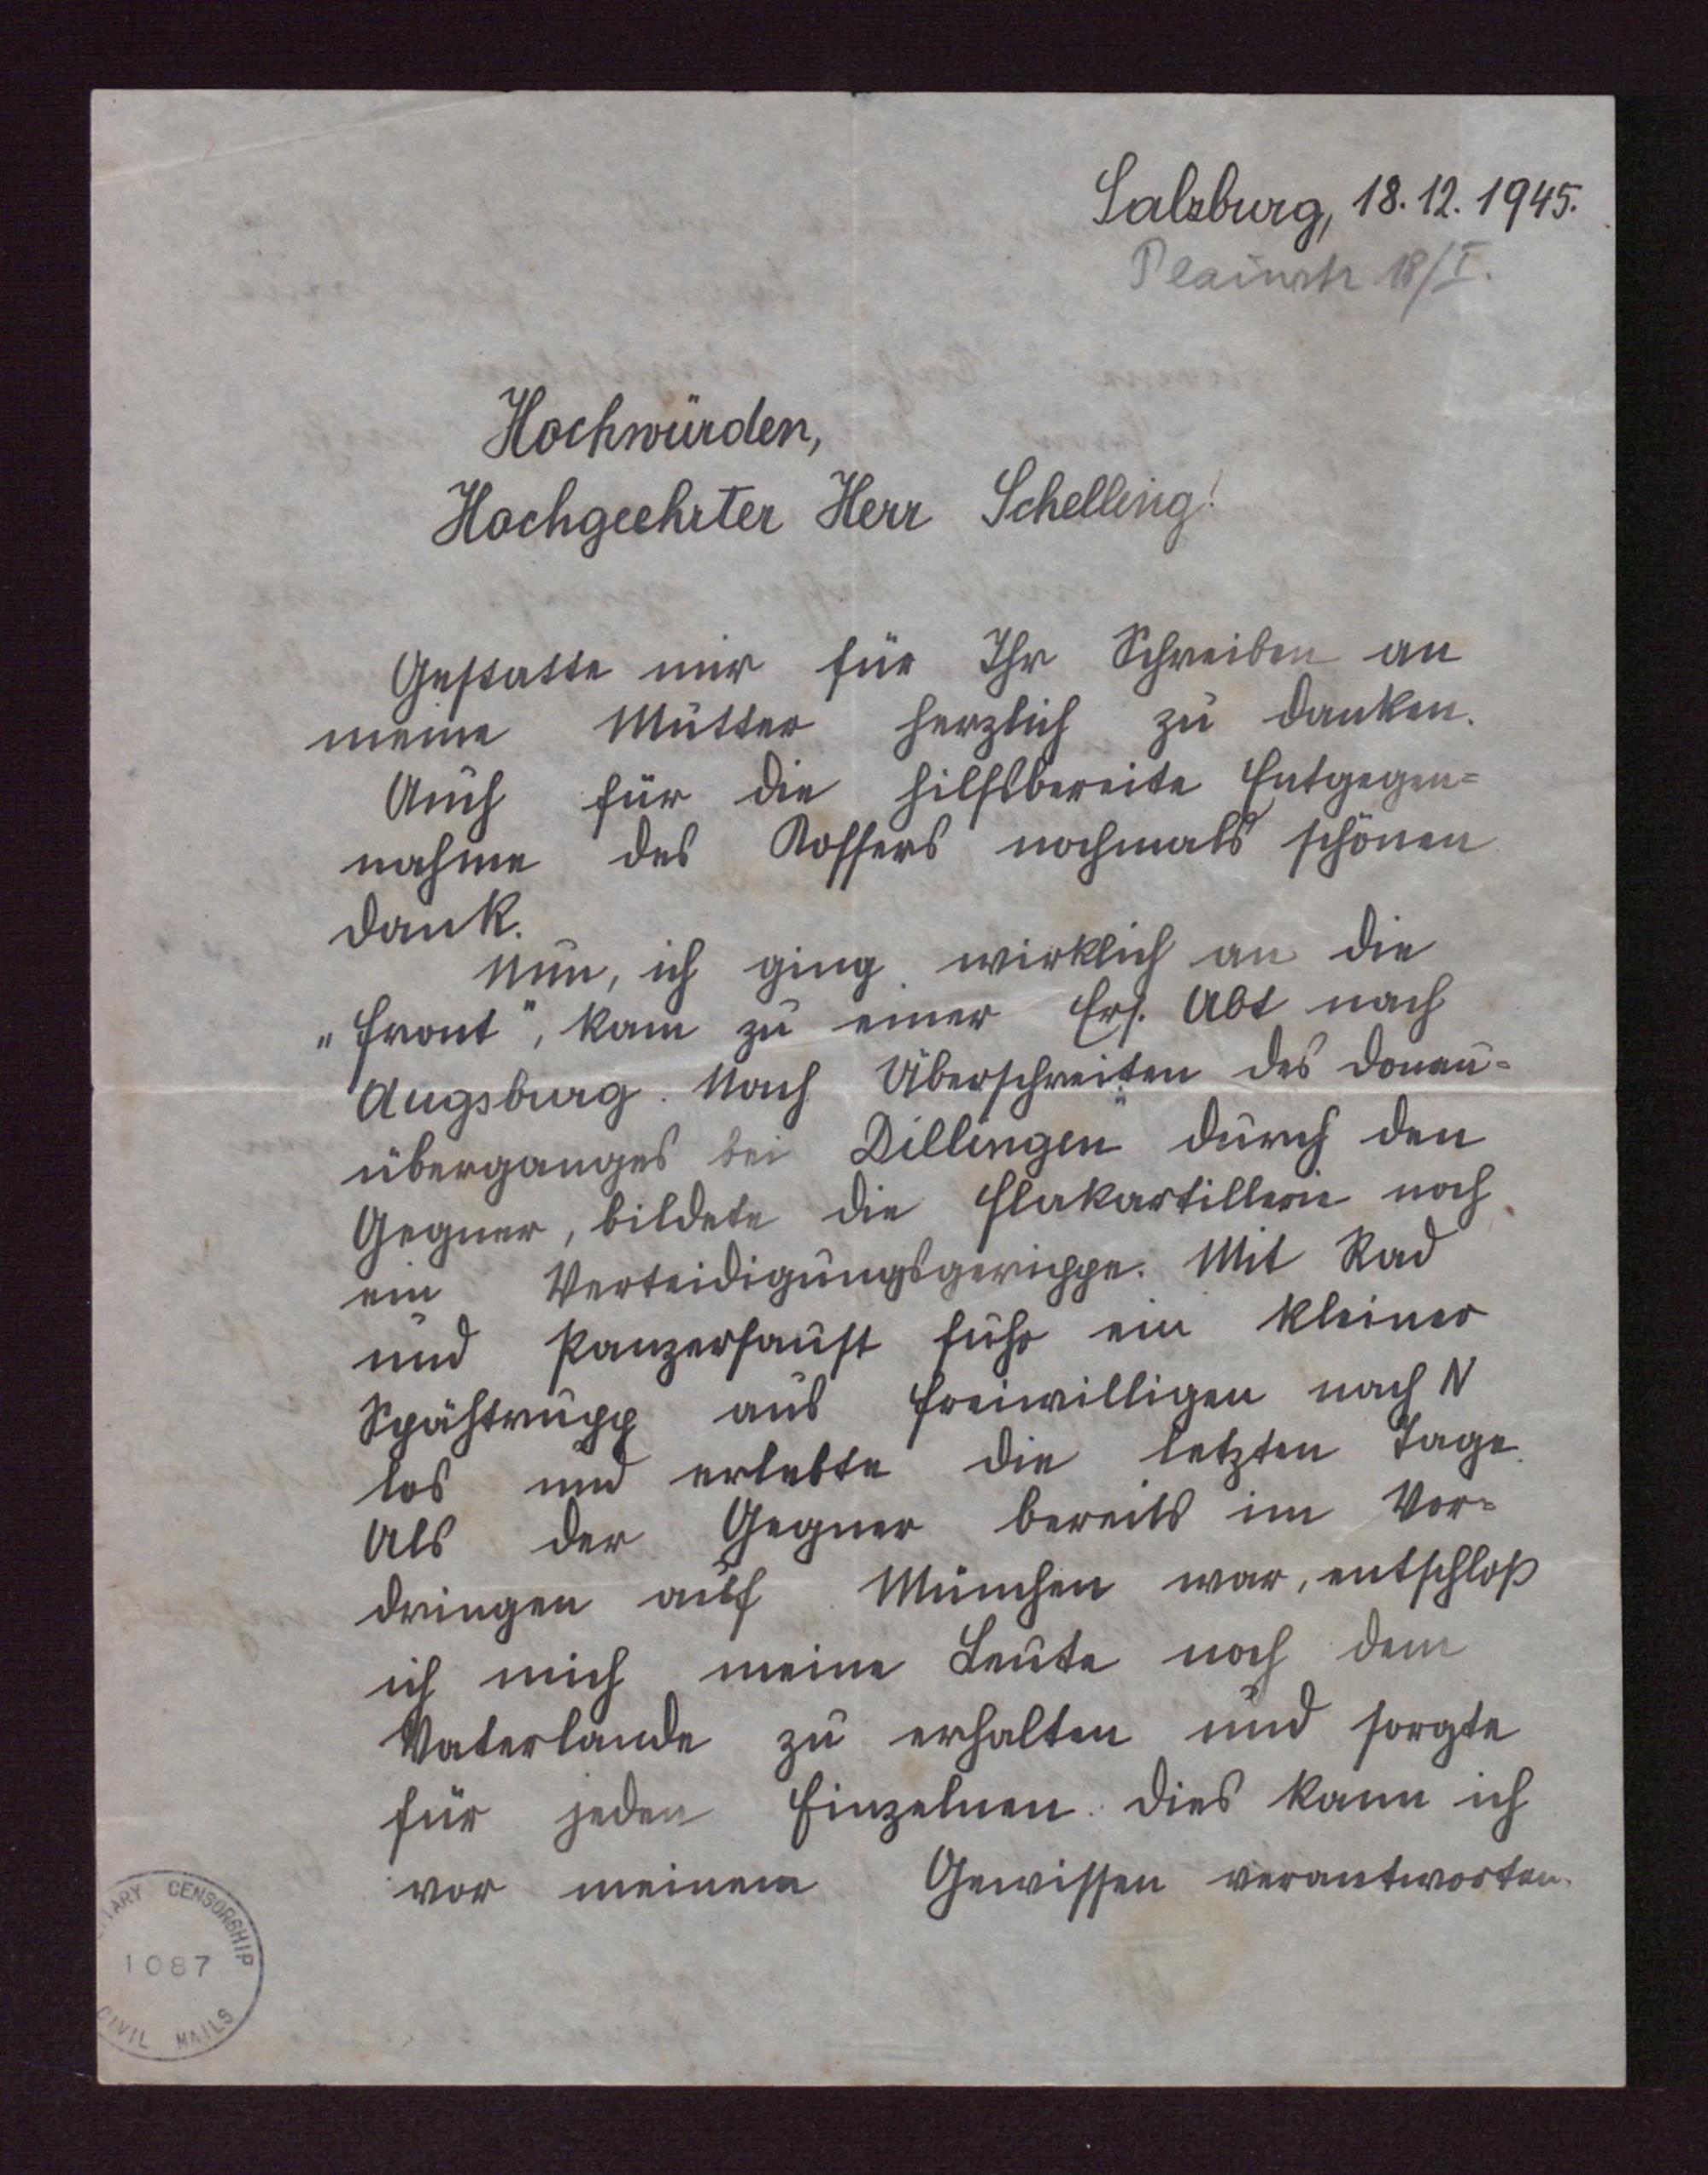 Salzburg, 18.12.1945.
Plainstr 18/I.
Hochwürden,
Hochgeehrter Herr Schelling!
Gestatte mir für Ihr Schreiben an
meine Mutter herzlich zu danken.
Auch für die hilfsbereite Entgegen=
nahme des Koffers nochmals schönen
Dank.
Nun, ich ging wirklich an die
„Front“, kam zu einer Ers. Abt nach
Augsburg. Nach Überschreiten des Donau=
überganges bei Dillingen durch den
Gegner, bildete die Flakartillerie noch
ein Verteidigungsgerippe. Mit Rad
und Panzerfaust fuhr ein kleiner
Spähtrupp aus Freiwilligen nach N
los und erlebte die letzten Tage.
Als der Gegner bereits im Vor=
dringen auf München war, entschloß
ich mich meine Leute noch dem
Vaterlande zu erhalten und sorgte
für jeden Einzelnen. Dies kann ich
vor meinem Gewissen verantworten.
TARY CENSORSHIP
1087
CIVIL MAILS